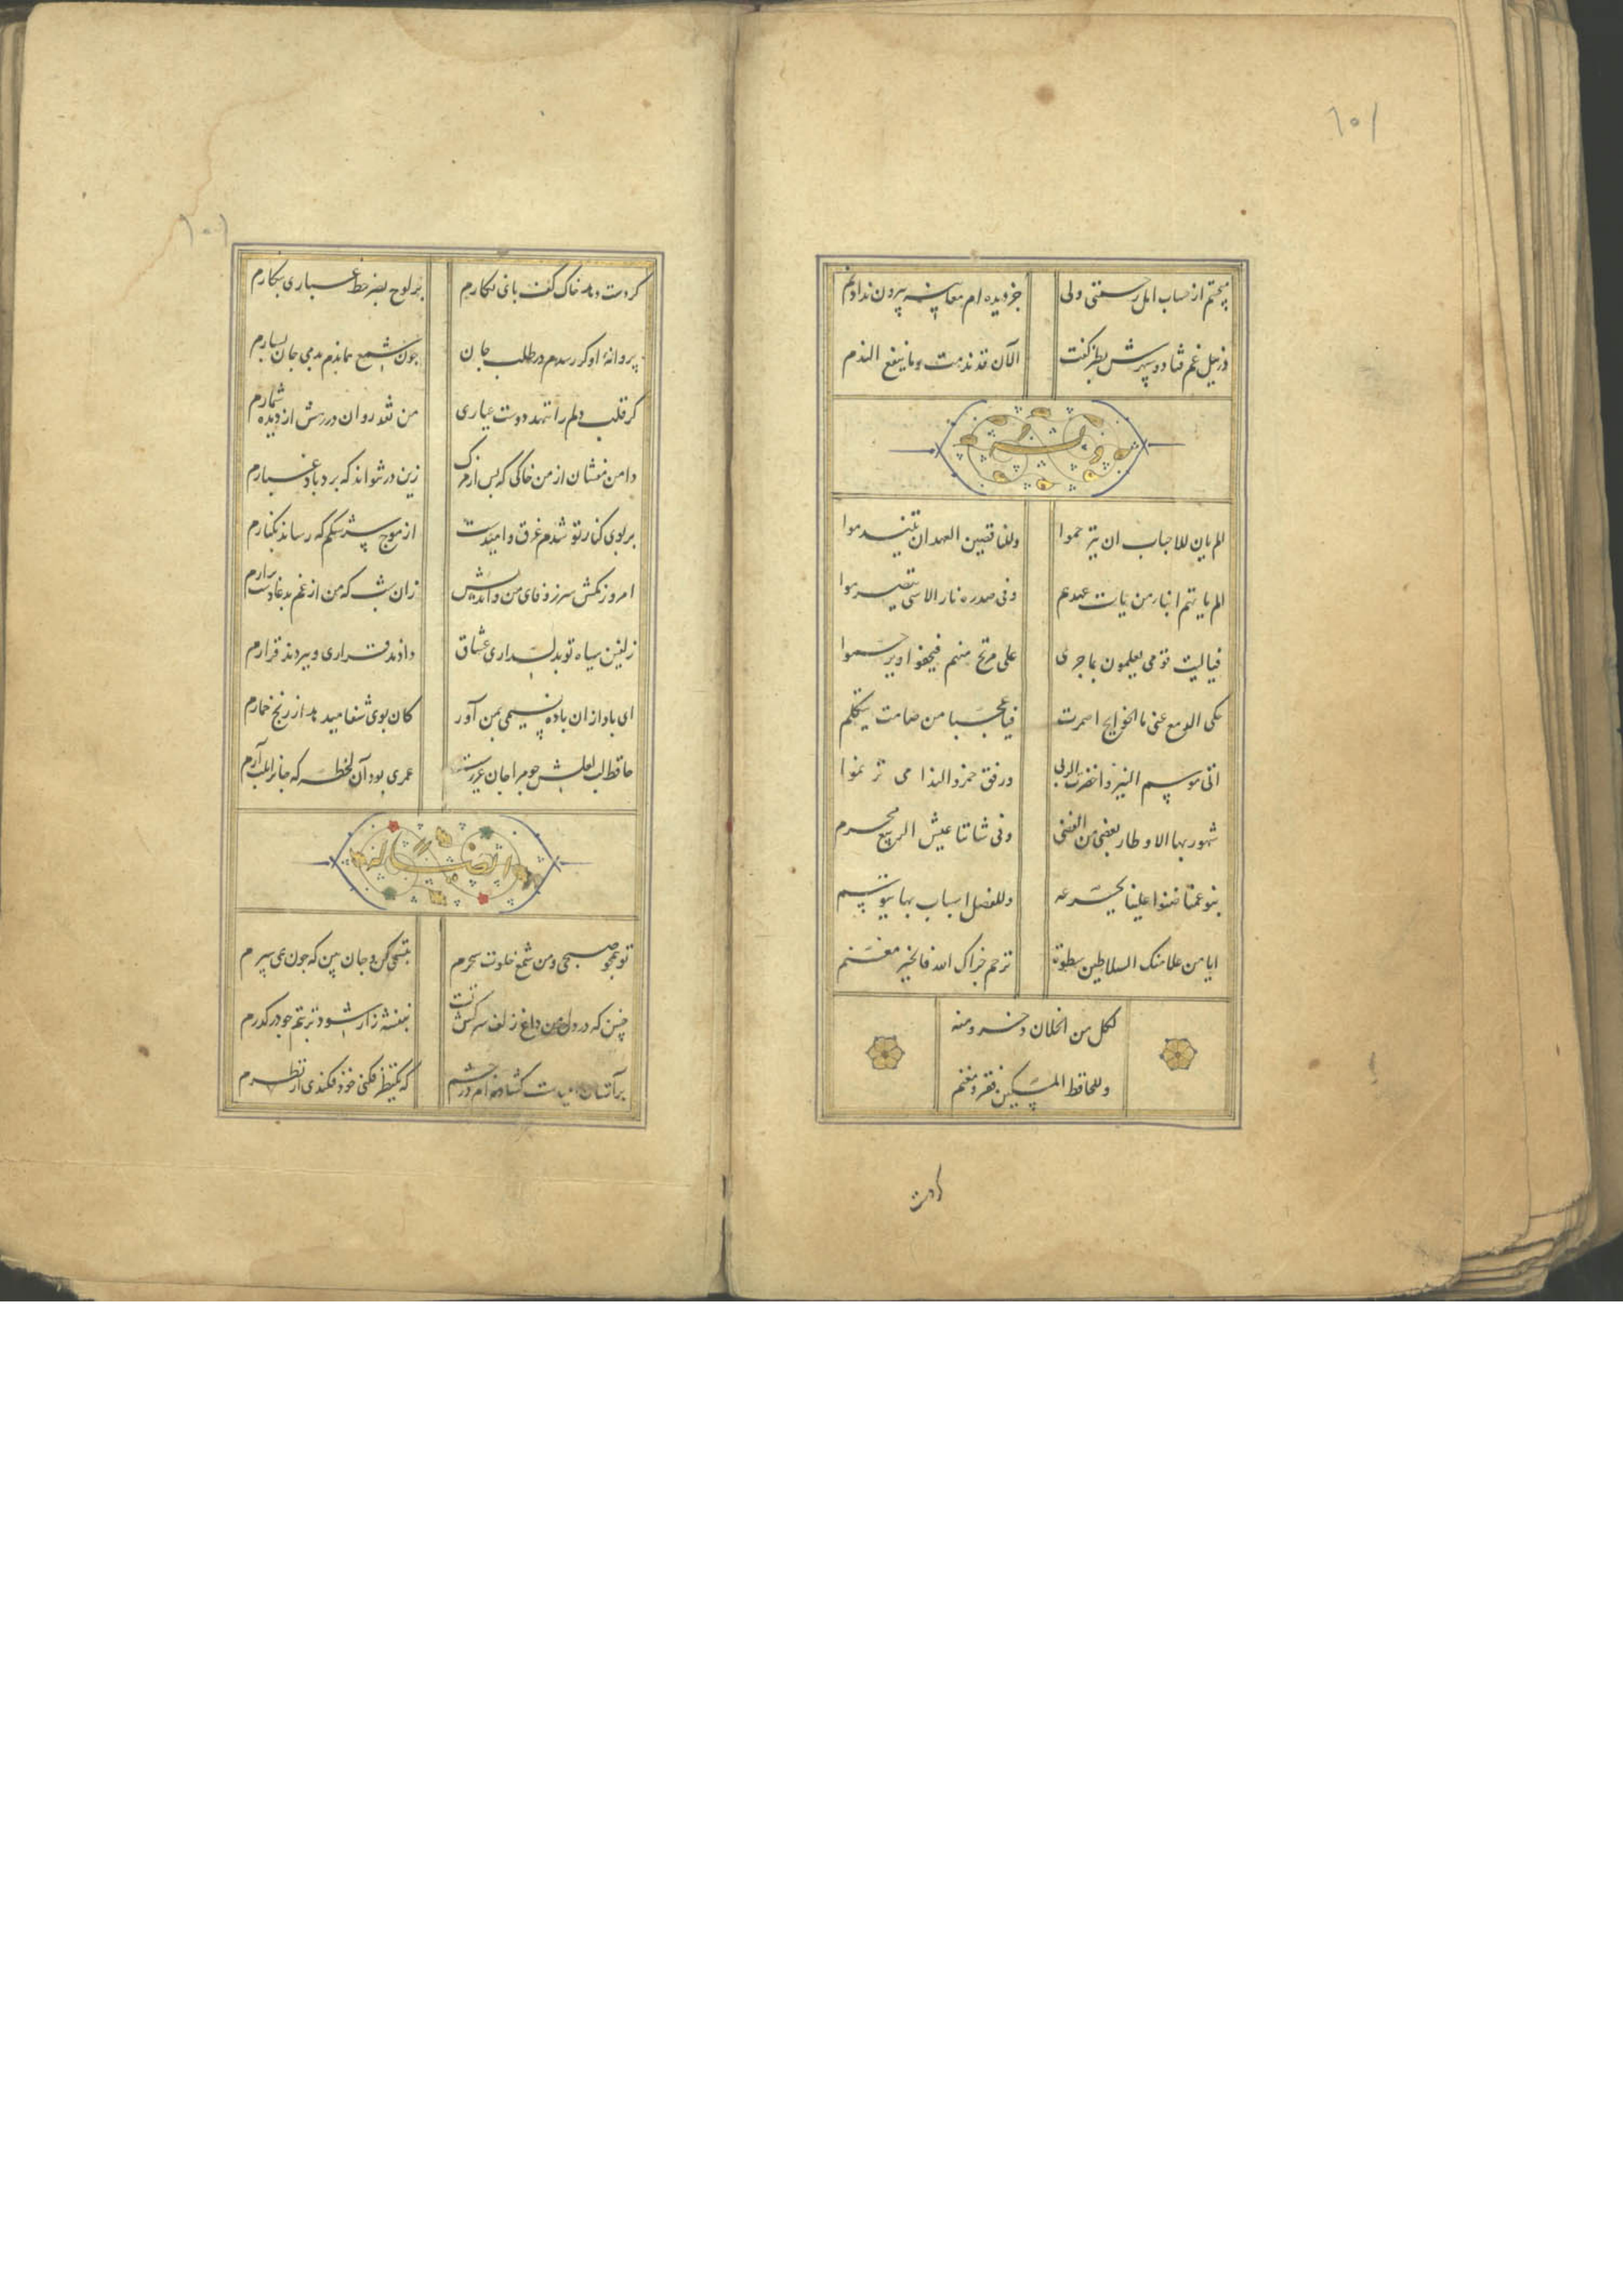 ۱۰۱
بجستم از سحاب امل رحمتی ولی   جز دیده ام معاینه بیرون نداد نم
در نیل غم فتاد و سپهرش بطنز گفت   الآن قد ندمت و ما ینفع الندم
الم یان للاحباب ان یترحموا   وللناقضین العهد ان یتندموا
الم یاتهم انبا من بات بعدهم   وفی صدره نار الاسی تتضرموا
فیالیت قومی یعلمون بما جری   علی مرتج منهم فیعفوا ویرحموا
حکی الدمع عنی ما الجوانح اضمرت   فیا عجبا من صامت یتکلم
اتی موسم النیروز اخضرت الربی   ورقق خمر والندامی ترنموا
شهور بها الاوطار تقضی من   وفی شاننا عیش الربیع محرم
بنو عمنا ضنوا علینا بجرعه   وللفضل اسباب بها یتوسم
ایا من علا منک السلاطین سطوة   ترحم جزاک الله فالخیر مغنم
لکل من الخلان ذخر ومنه
وللحافظ المسکین فقر ومغنم
کر دست
۱۰۱
کر دست دهد خاک کف پای نکارم   بر لوح بصر خط غباری بنکارم
پروانهٔ او کر رسدم در طلب جان   چون شمع هماندم بدمی جان بسپارم
کر قلب دلم را ننهد دوست عیاری   من نقد روان در رهش از دیده شمارم
دامن مفشان از من خاکی که پس از مرک   زین در نتواند که برد باد غبارم
بر بوی کنار تو شدم غرق و امیدست   از موج سرشکم که رساند بکنارم
امروز مکش سر ز وفای من و اندیش   زان شب که من از غم بدعا دست برارم
زلفین سیاه تو بدلداری عشاق   دادند قراری و ببردند قرارم
ای باد از ان باده نسیمی بمن آور   کان بوی شفا میدهد از رنج خمارم
حافظ لب لعلش چو مرا جان عزیزست   عمری بود آن لحظه که جانرا بلب آرم
ایضا له
تو همچو صبحی و من شمع خلوت سحرم   تبسمی کن و جان بین که چون همی سپرم
چنین که در دل من داغ زلف سرکش تست   بنفشه زار شود تربتم چو در کذرم
بر آستان امیدت کشاده ام در چشم   که یک نظر فکنی خود فکندی از نظرم